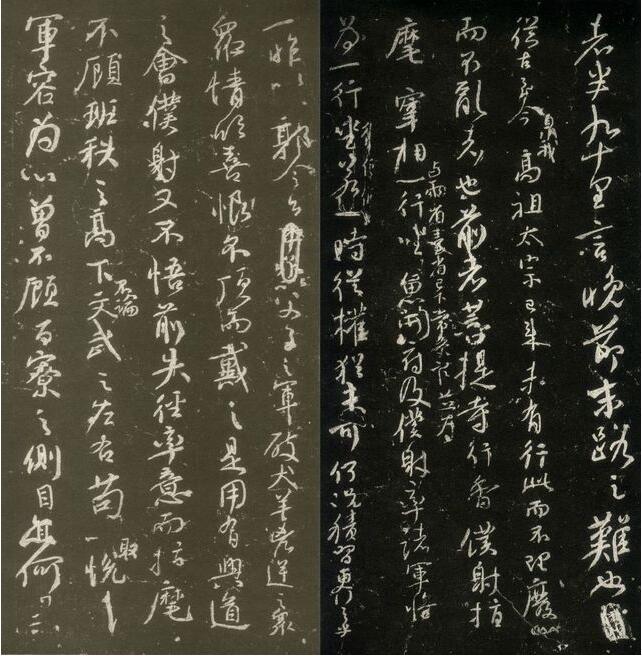 者半九十里言晚節末路之難也
從古至今暨我高祖太宗已來未有行此而不理廢
而不亂者也前者菩提寺行香僕射指
麾宰相與兩省臺省已下常參官並為一行坐魚開府及僕射率諸軍將
為一行坐若一時從權猶未可何況積習更行之乎
一昨以郭令公父子之軍破犬羊凶逆之眾
眾情欣喜恨不頂而戴之是用有興道
之會僕射又不悟前失徑率意而指麾
不顧班秩之高下不論文武之左右苟以取悅
軍容為心曾不顧百寮之側目亦何